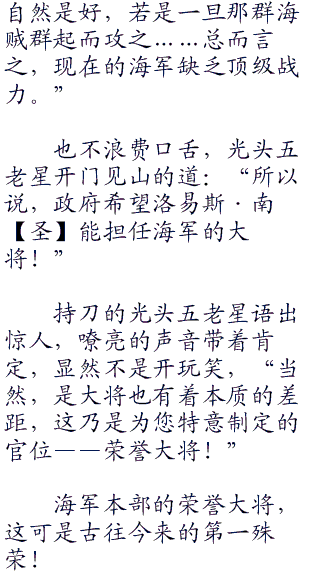 自然是好，若是一旦那群海
贼群起而攻之……总而言
之，现在的海军缺乏顶级战
力。”
也不浪费口舌，光头五
老星开门见山的道：“所以
说，政府希望洛易斯·南
【圣】能担任海军的大
将！”
持刀的光头五老星语出
惊人，嘹亮的声音带着肯
定，显然不是开玩笑，“当
然，是大将也有着本质的差
距，这乃是为您特意制定的
官位——荣誉大将！”
海军本部的荣誉大将，
这可是古往今来的第一殊
荣！